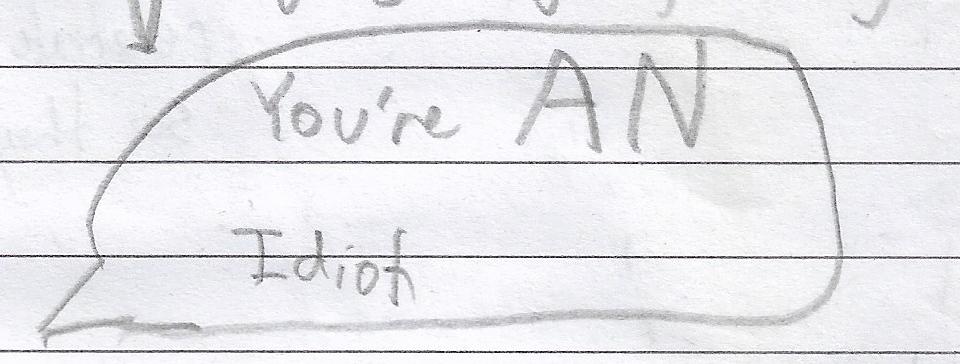 You're AN
Idiot